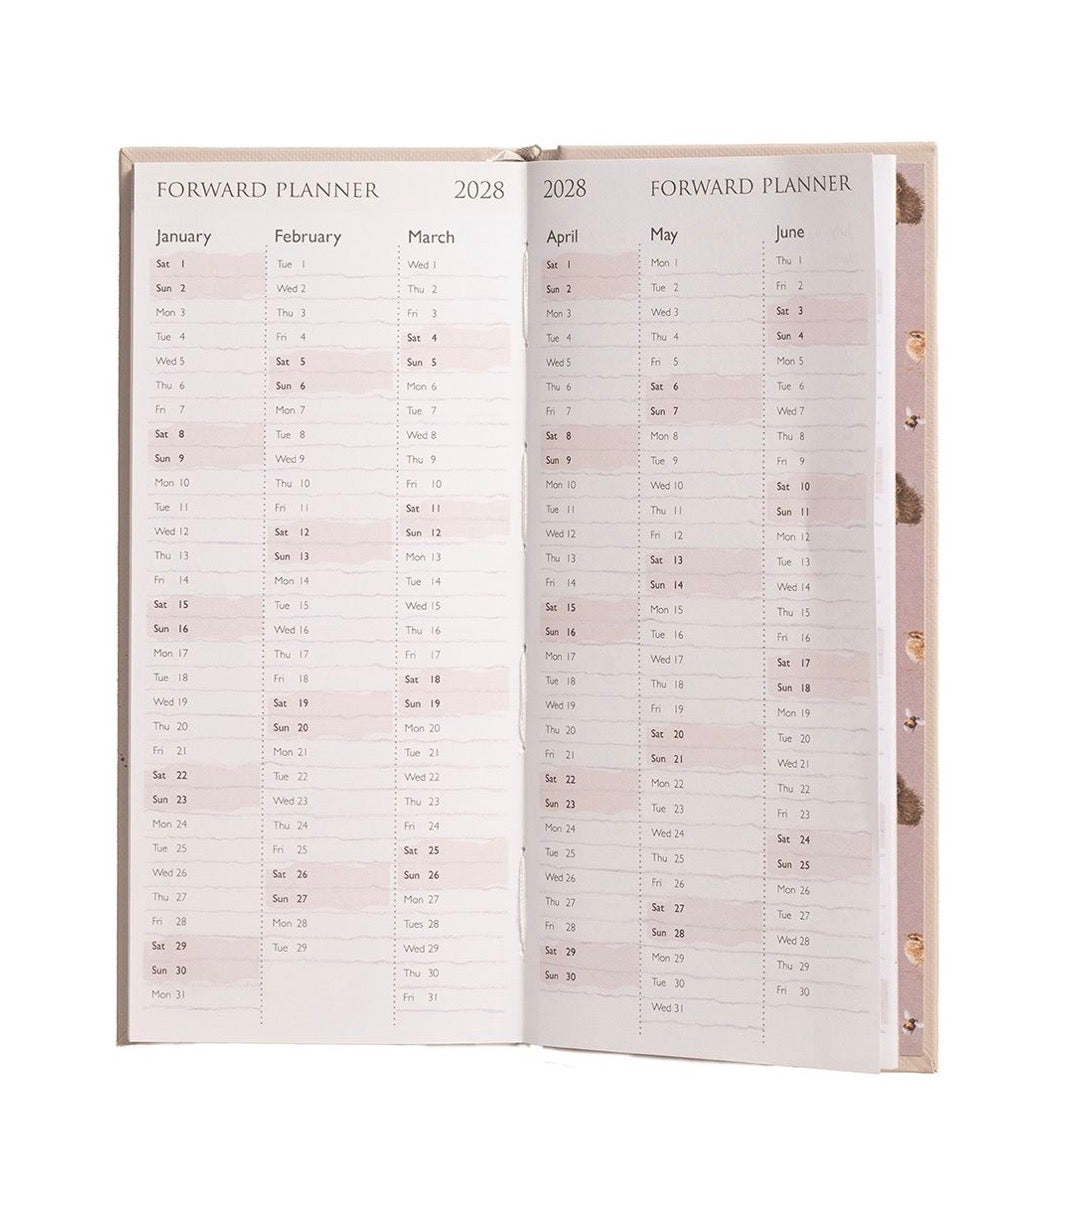 FORWARD PLANNER 2028
January
Sat 1
Sun 2
Mon 3
Tue 4
Wed 5
Thu 6
Fri 7
Sat 8
Sun 9
Mon 10
Tue 11
Wed 12
Thu 13
Fri 14
Sat 15
Sun 16
Mon 17
Tue 18
Wed 19
Thu 20
Fri 21
Sat 22
Sun 23
Mon 24
Tue 25
Wed 26
Thu 27
Fri 28
Sat 29
Sun 30
Mon 31
February
Tue 1
Wed 2
Thu 3
Fri 4
Sat 5
Sun 6
Mon 7
Tue 8
Wed 9
Thu 10
Fri 11
Sat 12
Sun 13
Mon 14
Tue 15
Wed 16
Thu 17
Fri 18
Sat 19
Sun 20
Mon 21
Tue 22
Wed 23
Thu 24
Fri 25
Sat 26
Sun 27
Mon 28
Tue 29
March
Wed 1
Thu 2
Fri 3
Sat 4
Sun 5
Mon 6
Tue 7
Wed 8
Thu 9
Fri 10
Sat 11
Sun 12
Mon 13
Tue 14
Wed 15
Thu 16
Fri 17
Sat 18
Sun 19
Mon 20
Tue 21
Wed 22
Thu 23
Fri 24
Sat 25
Sun 26
Mon 27
Tues 28
Wed 29
Thu 30
Fri 31
2028 FORWARD PLANNER
April
Sat 1
Sun 2
Mon 3
Tue 4
Wed 5
Thu 6
Fri 7
Sat 8
Sun 9
Mon 10
Tue 11
Wed 12
Thu 13
Fri 14
Sat 15
Sun 16
Mon 17
Tue 18
Wed 19
Thu 20
Fri 21
Sat 22
Sun 23
Mon 24
Tue 25
Wed 26
Thu 27
Fri 28
Sat 29
Sun 30
May
Mon 1
Tue 2
Wed 3
Thu 4
Fri 5
Sat 6
Sun 7
Mon 8
Tue 9
Wed 10
Thu 11
Fri 12
Sat 13
Sun 14
Mon 15
Tue 16
Wed 17
Thu 18
Fri 19
Sat 20
Sun 21
Mon 22
Tue 23
Wed 24
Thu 25
Fri 26
Sat 27
Sun 28
Mon 29
Tue 30
Wed 31
June
Thu 1
Fri 2
Sat 3
Sun 4
Mon 5
Tue 6
Wed 7
Thu 8
Fri 9
Sat 10
Sun 11
Mon 12
Tue 13
Wed 14
Thu 15
Fri 16
Sat 17
Sun 18
Mon 19
Tue 20
Wed 21
Thu 22
Fri 23
Sat 24
Sun 25
Mon 26
Tue 27
Wed 28
Thu 29
Fri 30